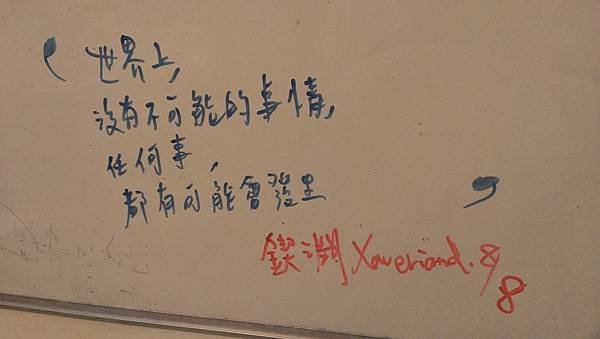 世界上,
沒有不可能的事情,
任何事,
都有可能會發生
8/8